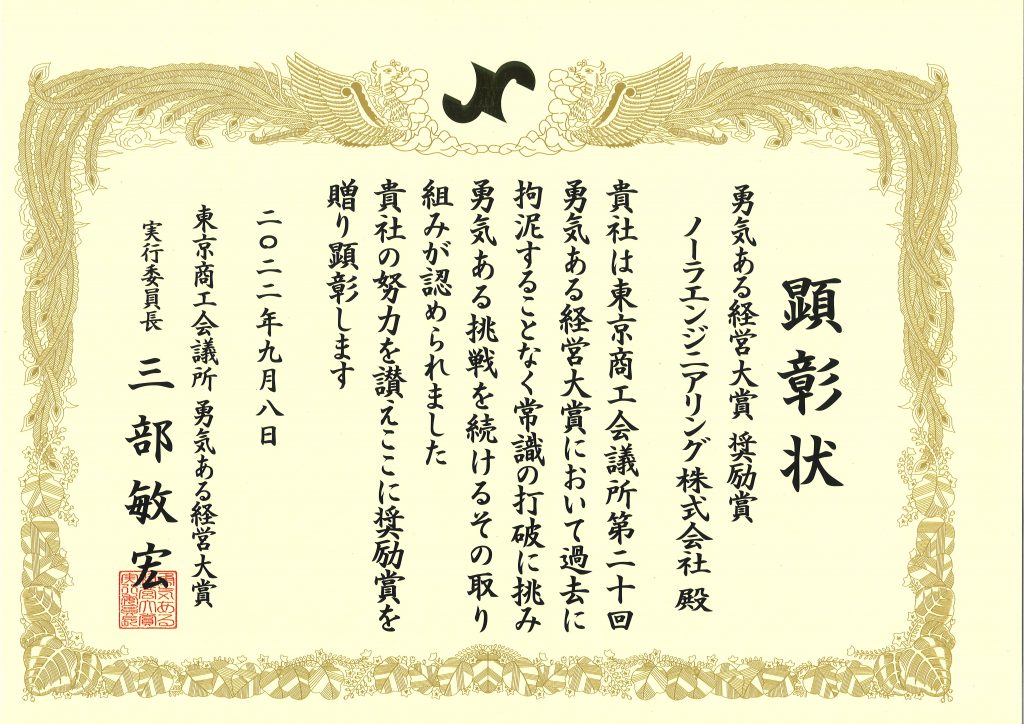 顕彰状
勇気ある経営大賞 奨励賞
ノーラエンジニアリング株式会社 殿
貴社は東京商工会議所第二十回
勇気ある経営大賞において過去に
拘泥することなく常識の打破に挑み
勇気ある挑戦を続けるその取り
組みが認められました
貴社の努力を讃えここに奨励賞を
贈り顕彰します
二〇二二年九月八日
東京商工会議所 勇気ある経営大賞
実行委員長 三部敏宏
勇気ある
経営大賞
実行委員長